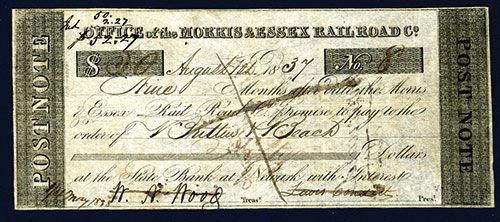 50.
2.27
52.27
OFFICE of the MORRIS & ESSEX RAIL ROAD Co.
$ 50 August 1837 No. 8
Nine Months after date the Morris
& Essex Rail Road Co. promise to pay to the
order of Beach
Dollars
at the State Bank at Newark with Interest
W. N. Wood Treasr. Lewis Condict Prest.
POST NOTE
POST NOTE